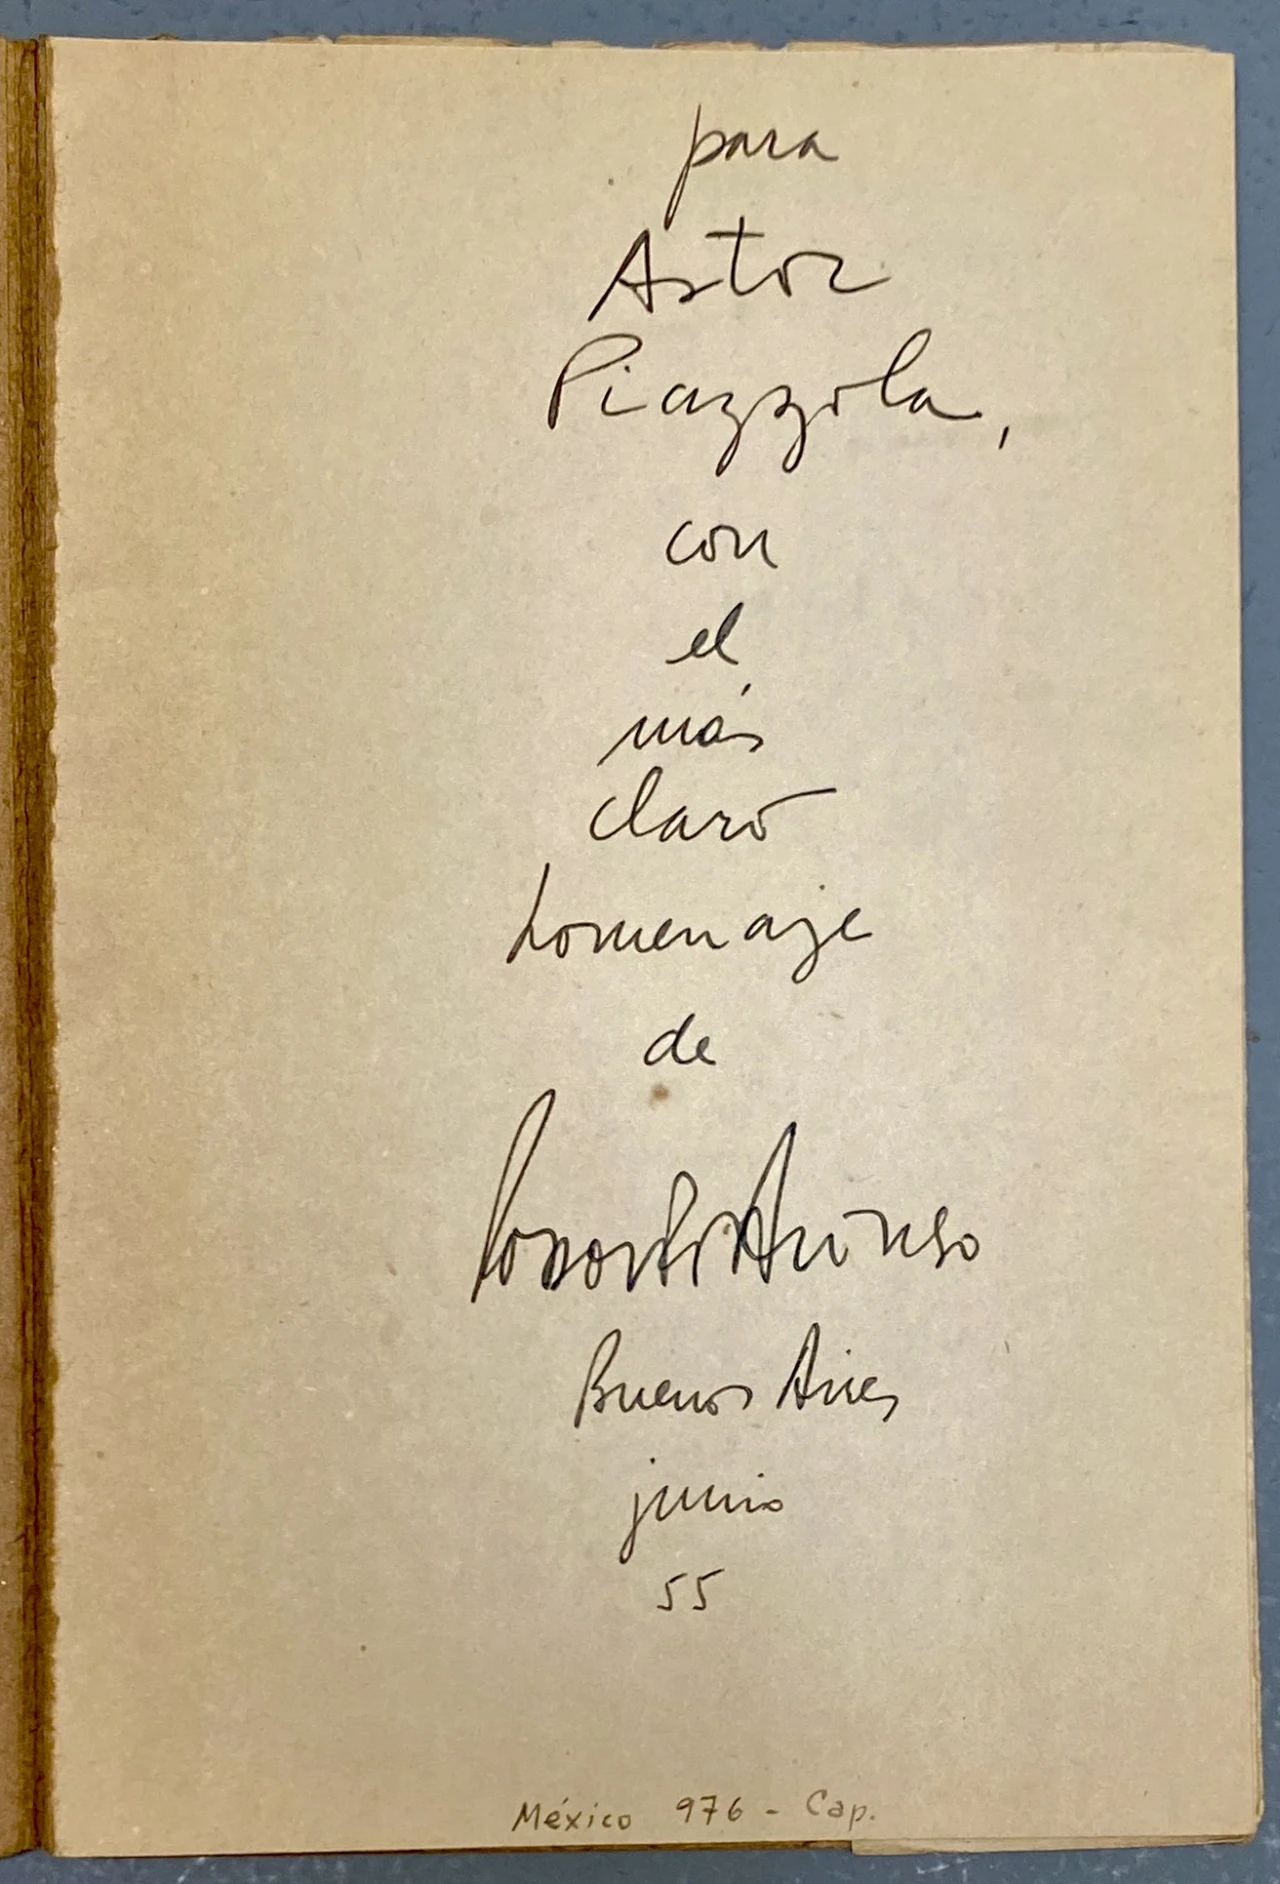 para
Astor
Piazzola,
con
el
más
claro
homenaje
de
Rodolfo Alonso
Buenos Aires
junio
55
México 976 - Cap.